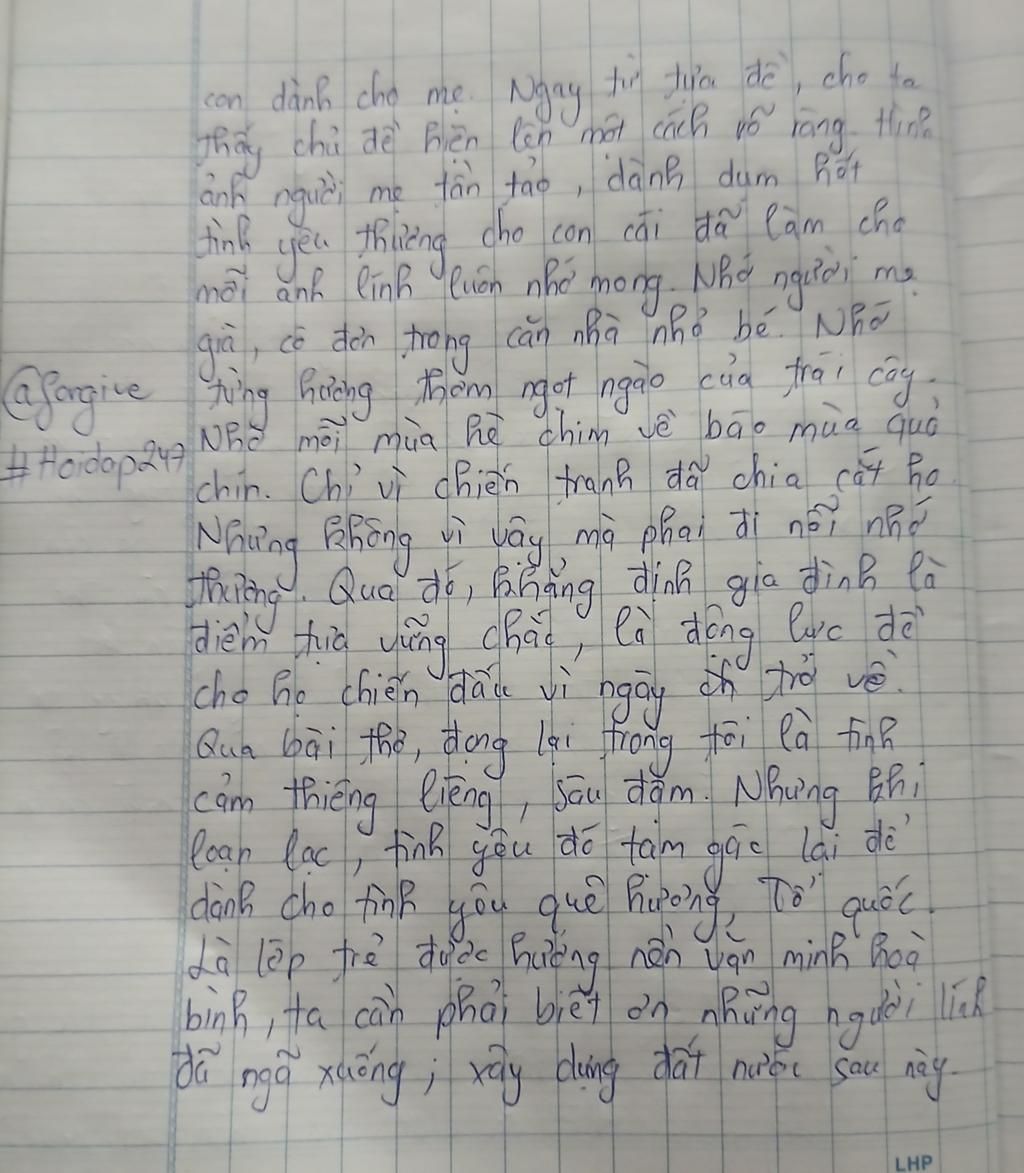 con dành cho mẹ. Ngay từ tựa đề, cho ta
thấy chủ đề hiện lên một cách rõ ràng. Hình
ảnh người mẹ tần tảo, dành dụm hết
tình yêu thương cho con cái đã làm cho
mỗi anh lính luôn nhớ mong. Nhớ người mẹ
già, cô đơn trong căn nhà nhỏ bé. Nhớ
từng hương thơm ngọt ngào của trái cây.
@forgive
Nhớ mỗi mùa hè chim về báo mùa quả
#Hoidap247
chín. Chỉ vì chiến tranh đã chia cắt họ
Nhưng không vì vậy mà phai đi nỗi nhớ
thương. Qua đó, khẳng định gia đình là
điểm tựa vững chắc, là động lực để
cho họ chiến đấu vì ngày trở về.
Qua bài thơ, đọng lại trong tôi là tình
cảm thiêng liêng, sâu đậm. Nhưng khi
loạn lạc, tình yêu đó tạm gác lại để
dành cho tình yêu quê hương, Tổ quốc.
Là lớp trẻ được hưởng nền văn minh hoà
bình, ta cần phải biết ơn những người lính
đã ngã xuống; xây dựng đất nước sau này.
LHP